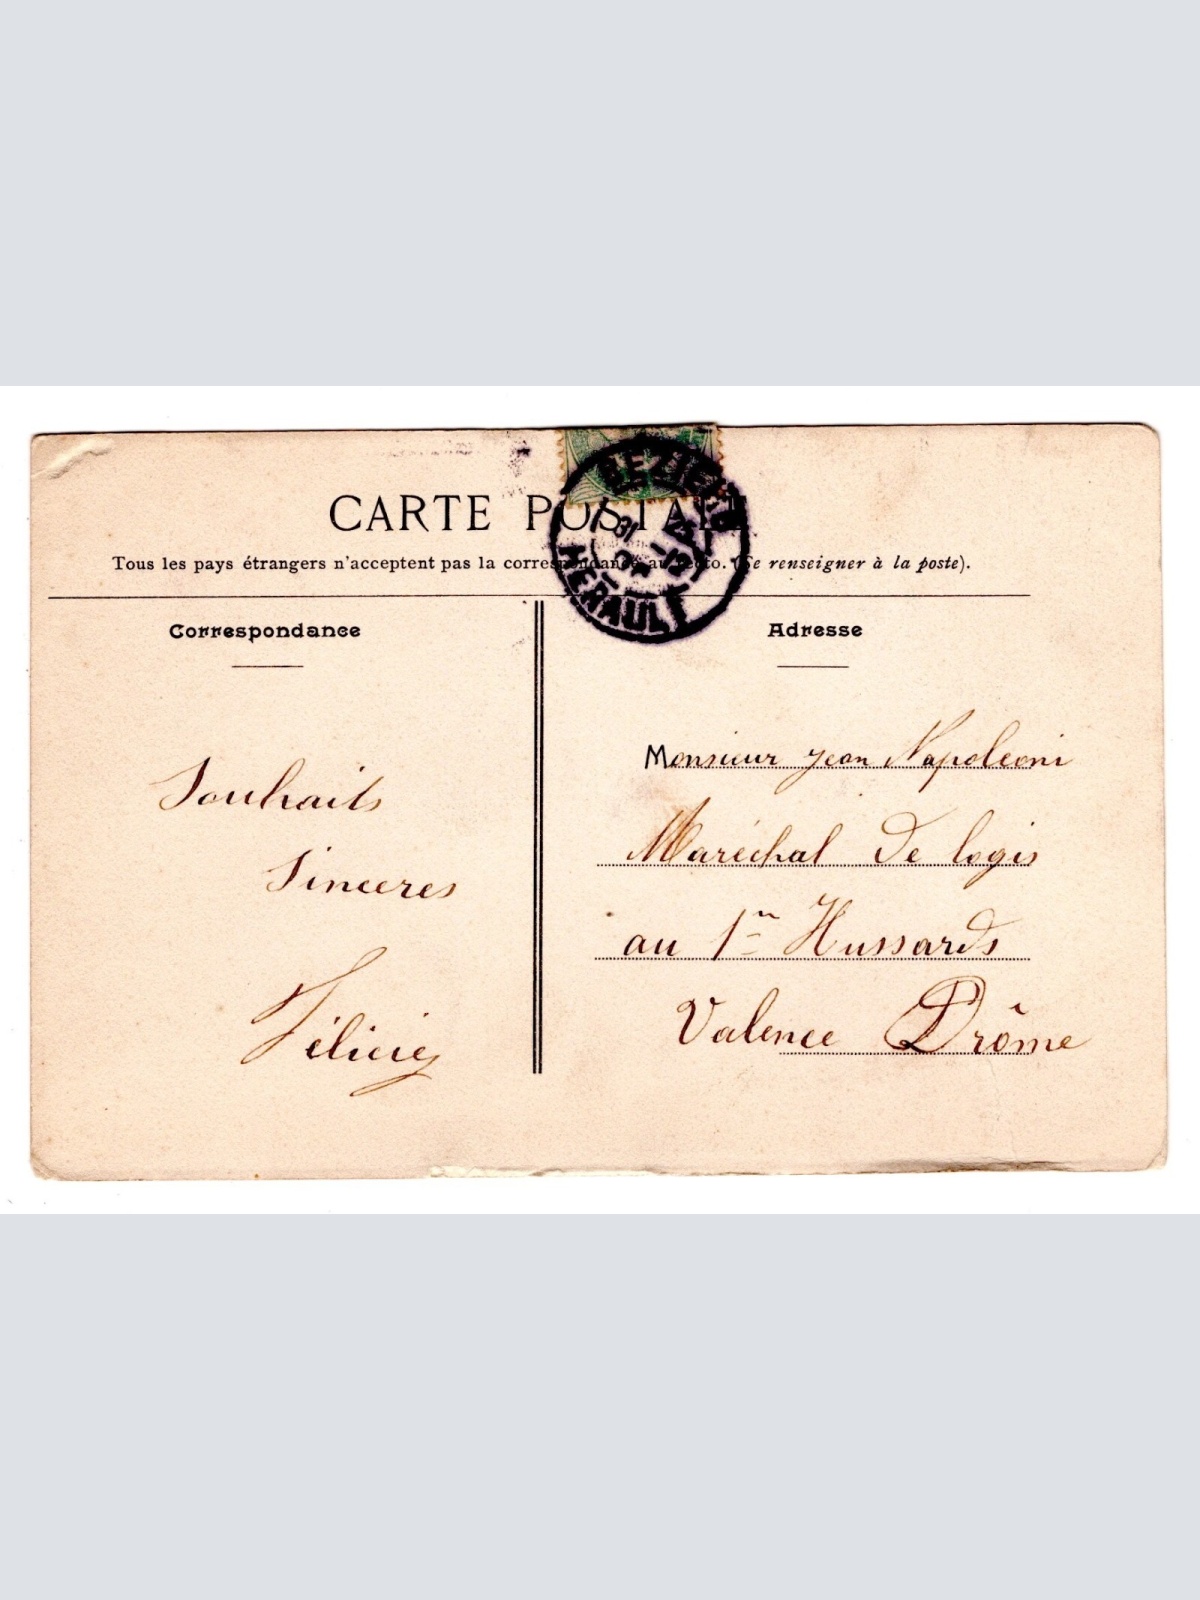 CARTE POSTALE
BEZIERS
HERAULT
Tous les pays étrangers n'acceptent pas la correspondance au recto. (Se renseigner à la poste).
Correspondance
Souhaits
Sinceres
Félicie
Adresse
Monsieur Jean Napoleoni
Maréchal De logis
au 1er Hussards
Valence Drôme